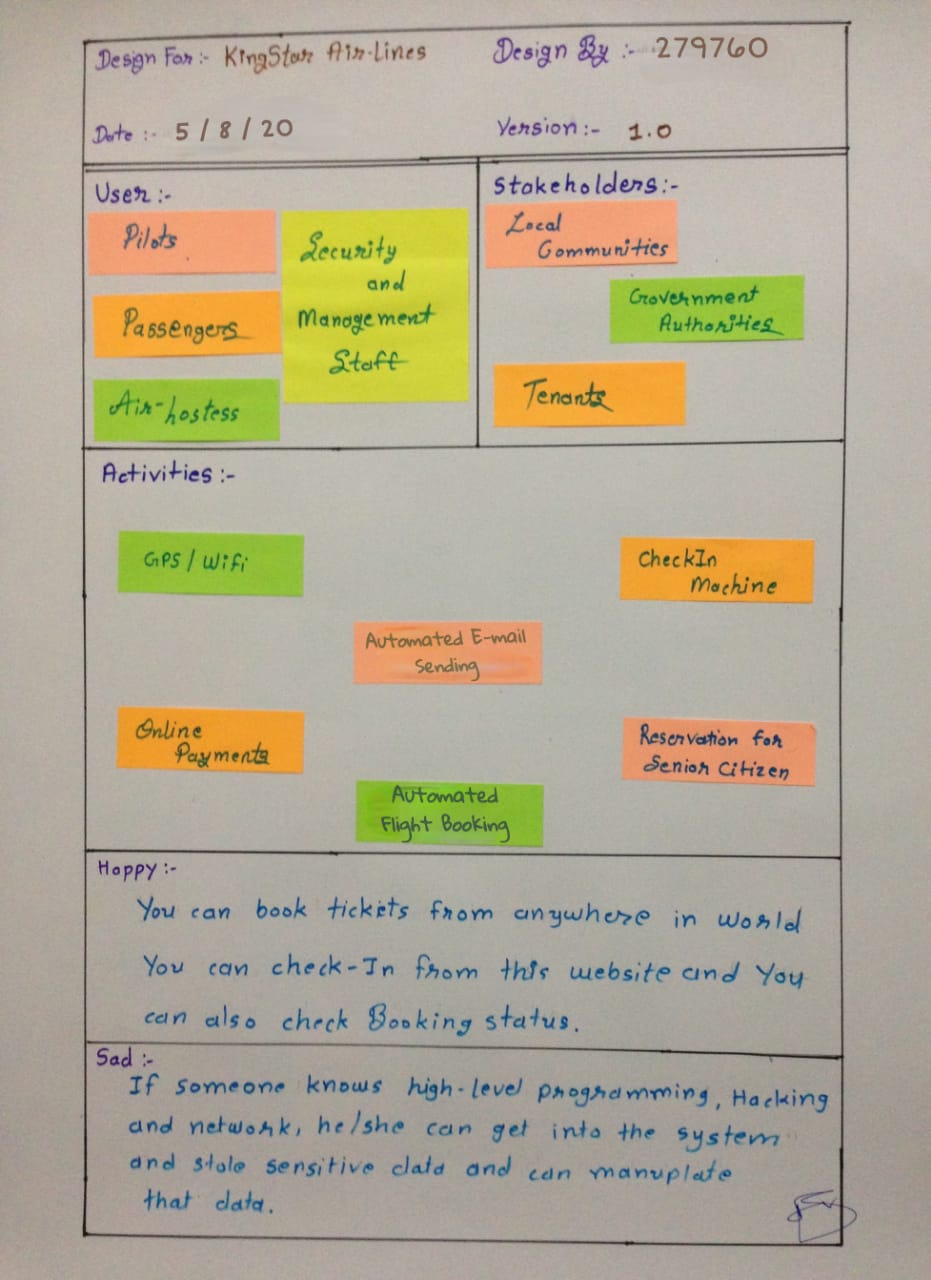 Design For :- KingStar Air-Lines
Design By :- 279760
Date :- 5 / 8 / 20
Version :- 1.0
User :-
Pilots
Passengers
Air-hostess
Security
and
Management
Staff
Stakeholders :-
Local
Communities
Government
Authorities
Tenants
Activities :-
GPS / Wifi
CheckIn
Machine
Automated E-mail
Sending
Online
Payments
Reservation for
Senior Citizen
Automated
Flight Booking
Happy :-
You can book tickets from anywhere in world
You can check-In from this website and You
can also check Booking status.
Sad :-
If someone knows high-level programming, Hacking
and network, he/she can get into the system
and stole sensitive data and can manuplate
that data.